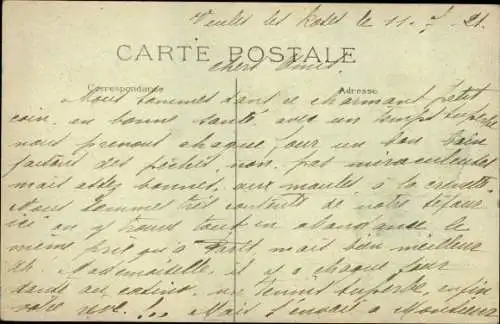 Veules les Roses le 11. 7. 21.
CARTE POSTALE
Chers Amis.
Correspondance
Adresse
Nous sommes dans ce charmant petit
coin, en bonne santé, avec un temps superbe
nous prenons chaque jour un bon bain
faisons des pêches, non pas miraculeuses
mais assez bonnes, aux moules à la crevette
Nous sommes très contents de notre séjour
ici on y trouve tout en abondance le
même prix qu'à mais bien meilleur
Mademoiselle, il y a chaque jour
danse au casino, un tennis superbe enfin
votre !.. Mais l'envoit à Monsieur